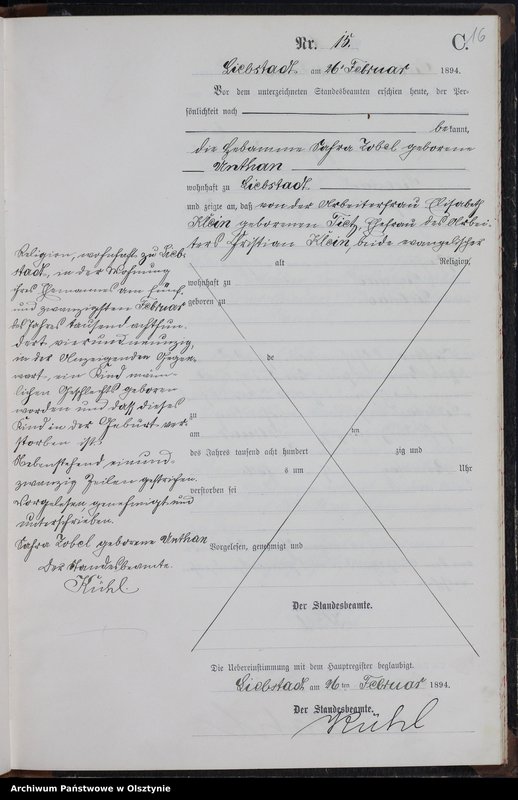 16
Nr. 15.
C.
Liebstadt am 26t Februar 1894.
Vor dem unterzeichneten Standesbeamten erschien heute, der Per-
sönlichkeit nach
bekannt,
die Hebamme Sahra Zobel geborene
Unthan
wohnhaft zu Liebstadt
und zeigte an, daß von der Arbeiterfrau Elisabeth
Klein geborenen Tietz, Ehefrau des Arbei-
ters Christian Klein, beide evangelischer
alt Religion,
wohnhaft zu
geboren zu
de
zu
am ten
des Jahres tausend acht hundert zig und
s um Uhr
verstorben sei
Vorgelesen, genehmigt und
Der Standesbeamte.
Religion, wohnhaft zu Lieb-
stadt, in der Wohnung
ihres Ehemannes am fünf
und zwanzigsten Februar
des Jahres tausend achthun-
dert vierundneunzig,
in der Anzeigenden Gegen-
wart, ein Kind männ-
lichen Geschlechts geboren
worden und daß dieses
Kind in der Geburt ver-
storben ist.
Nebenstehend einund-
zwanzig Zeilen gestrichen.
Vorgelesen, genehmigt und
unterschrieben.
Sahra Zobel geborene Unthan
Der Standesbeamte.
Kühl
Die Uebereinstimmung mit dem Hauptregister beglaubigt.
Liebstadt am 26ten Februar 1894.
Der Standesbeamte.
Kühl
Archiwum Państwowe w Olsztynie